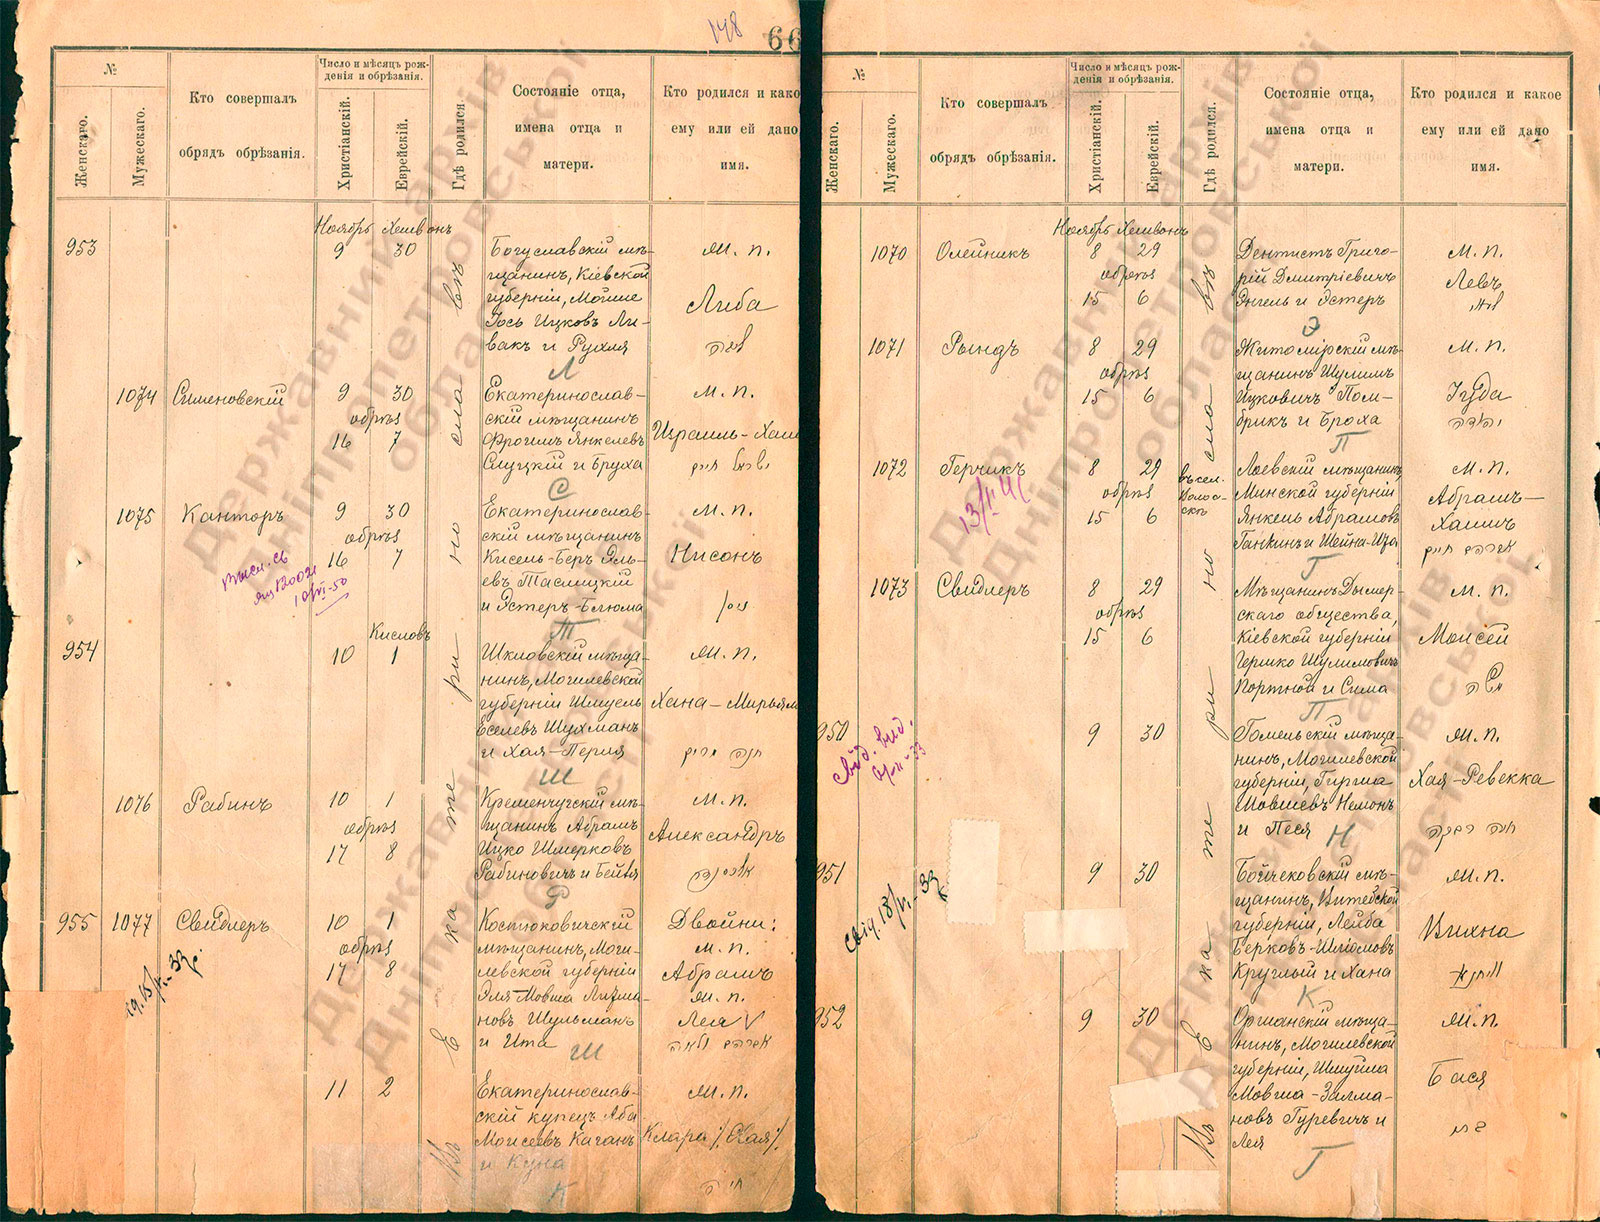 148
66
№
Женскаго.
Мужескаго.
Кто совершалъ
обрядъ обрѣзанія.
Число и мѣсяцъ рож-
денія и обрѣзанія.
Христіанскій.
Еврейскій.
Гдѣ родился.
Состояніе отца,
имена отца и
матери.
Кто родился и како
ему или ей дано
имя.
Ноябрь Хешвонъ
953
9 30
Богуславскій мѣ-
щанинъ, Кіевской
губерніи, Мойше
Іось Ицковъ Ли-
вакъ и Рухля
М. п.
Либа
ליבה
Л
1074 Сименовскій
9 30
обрѣз
16 7
Екатеринослав-
скій мѣщанинъ
Фроимъ Янкелевъ
Слуцкій и Бруха
М. п.
Израиль-Хаим
ישראל חיים
С
1075 Канторъ
9 30
обрѣз
16 7
Екатеринослав-
скій мѣщанинъ
Кисель-Беръ Эль-
евъ Таслицкій
и Эстеръ-Блюма
М. п.
Нисонъ
ניסן
Т
Кислевъ
954
10 1
Шкловскій мѣща-
нинъ, Могилевской
губерніи Шмуель
Еселевъ Шухманъ
и Хая-Перля
М. п.
Хана-Мирьям
חנה מרים
Ш
1076 Рабинъ
10 1
обрѣз
17 8
Кременчугскій мѣ-
щанинъ Абрамъ
Ицко Шмерковъ
Рабиновичъ и Бейля
М. п.
Александръ
אלכסנדר
Р
955 1077 Свидлеръ
10 1
обрѣз
17 8
Костюковичскій
мѣщанинъ, Моги-
левской губерніи
Эля Мовша Лизма-
новъ Шульманъ
и Ита
Двойни:
М. п.
Абрамъ
М. п.
Лея V
אברהם ולאה
Ш
11 2
Екатеринослав-
скій купецъ Аба
Моисеевъ Каганъ
и Куна
М. п.
Клара /Хая/
חיה
К
Въ Екатеринославѣ
№
Женскаго.
Мужескаго.
Кто совершалъ
обрядъ обрѣзанія.
Число и мѣсяцъ рож-
денія и обрѣзанія.
Христіанскій.
Еврейскій.
Гдѣ родился.
Состояніе отца,
имена отца и
матери.
Кто родился и какое
ему или ей дано
имя.
Ноябрь Хешвонъ
1070 Олейникъ
8 29
обрѣз
15 6
Дентистъ Григо-
рій Дмитріевичъ
Энгель и Эстеръ
М. п.
Левъ
Э
1071 Рындъ
8 29
обрѣз
15 6
Житомірскій мѣ-
щанинъ Шулимъ
Ицковичъ Пом-
брикъ и Броха
М. п.
Іуда
יהודה
П
1072 Герчикъ
13/II 41
8 29
обрѣз
15 6
въ сел.
Лоевскій мѣщанинъ,
Минской губерніи
Янкель Абрамовъ
Ганкинъ и Шейна-Иза
М. п.
Абрамъ-
Хаимъ
אברהם חיים
Г
1073 Свидлеръ
8 29
обрѣз
15 6
Мѣщанинъ Дымер-
скаго общества,
Кіевской губерніи
Гершко Шулимовичъ
Портной и Сима
М. п.
Моисей
משה
П
950
свід. вид.
9 30
Гомельскій мѣща-
нинъ, Могилевской
губерніи, Гирша
Мовшевъ Немонъ
и Песя
М. п.
Хая-Ревекка
חיה רבקה
Н
951
9 30
Бойчековскій мѣ-
щанинъ, Витебской
губерніи, Лейба
Берковъ-Шліомовъ
Круглый и Хана
М. п.
Вихна
К
952
9 30
Оршанскій мѣща-
нинъ, Могилевской
губерніи, Шмуйла
Мовша-Залма-
новъ Гуревичъ и
Лея
М. п.
Бася
Г
Въ Екатеринославѣ
Державний архів
Дніпропетровської
області